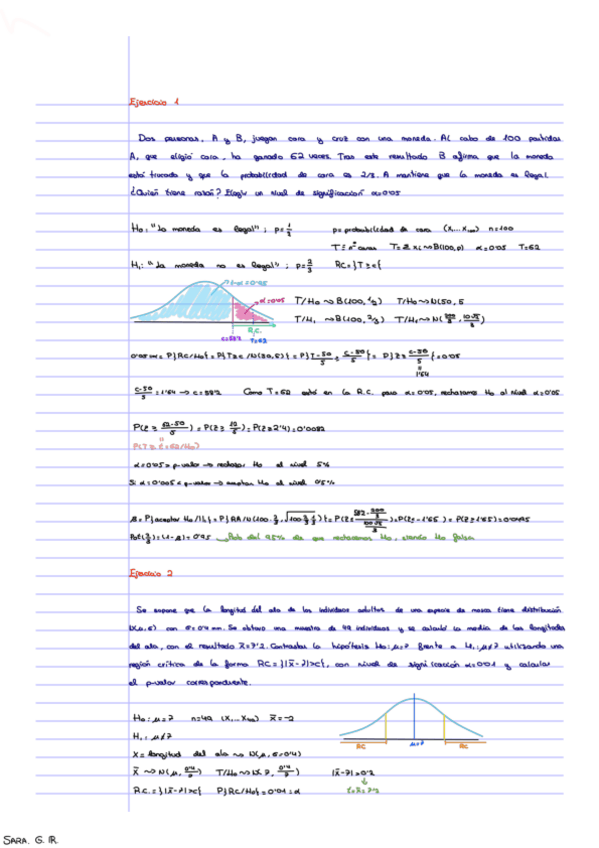 Ejercicio 1
Dos personas, A y B, juegan cara y cruz con una moneda. Al cabo de 100 partidas
A, que eligió cara, ha ganado 62 veces. Tras este resultado B afirma que la moneda
está trucada y que la probabilidad de cara es 2/3. A mantiene que la moneda es legal
¿Quién tiene razón? Elegir un nivel de significación α=0'05
H₀: "la moneda es legal"; p=1/2 p=probabilidad de cara (X₁...X₁₀₀) n=100
T≡nº caras T=Σxᵢ~>B(100,p) α=0'05 T=62
H₁: "la moneda no es legal"; p=2/3 RC={T≥c}
1-α=0'95
α=0'05 T/H₀ ~> B(100,1/2) T/H₀~>N(50,5)
T/H₁ ~>B(100,2/3) T/H₁~>N(200/3, 10√2/3)
R.C.
c=58'2 T=62
0'05=α=P{RC/H₀}=P{T≥c/N(50,5)}=P{T-50/5≥c-50/5}=P{Z≥c-50/5}=0'05
1'64
c-50/5=1'64→c=58'2 Como T=62 está en la R.C. para α=0'05, rechazamos H₀ al nivel α=0'05
P(Z≥62-50/5)=P(Z≥12/5)=P(Z≥2'4)=0'0082
P(T≥t=62/H₀)
α=0'05>p-valor→rechazar H₀ al nivel 5%
Si α=0'005<p-valor→aceptar H₀ al nivel 0'5%
β=P{aceptar H₀/H₁}=P{RA/N(100·2/3,√100·2/3·1/3)}=P(Z≤58'2-200/3/10√2/3)=P(Z≤-1'65)=P(Z≥1'65)=0'0495
Pot(2/3)=(1-β)=0'95 Prob del 95% de que rechacemos H₀, siendo H₀ falsa
Ejercicio 2
Se supone que la longitud del ala de los individuos adultos de una especie de mosca tiene distribución
N(μ,σ) con σ=0'4 mm. Se obtuvo una muestra de 49 individuos y se calculó la media de las longitudes
del ala, con el resultado x̄=7'2. Contrastar la hipótesis H₀:μ=7 frente a H₁:μ≠7 utilizando una
región crítica de la forma RC={|x̄-7|>c}, con nivel de significación α=0'01 y calcular
el p-valor correspondiente.
H₀:μ=7 n=49 (X₁...X₄₉)
H₁:μ≠7
RC μ=7 RC
X=longitud del ala~>N(μ,σ=0'4)
X̄~>N(μ,0'4/7) T/H₀~>N(7,0'4/7) |x̄-7|=0'2
R.C.={|x̄-7|>c} P{RC/H₀}=0'01=α t=x̄=7'2
SARA. G. R.